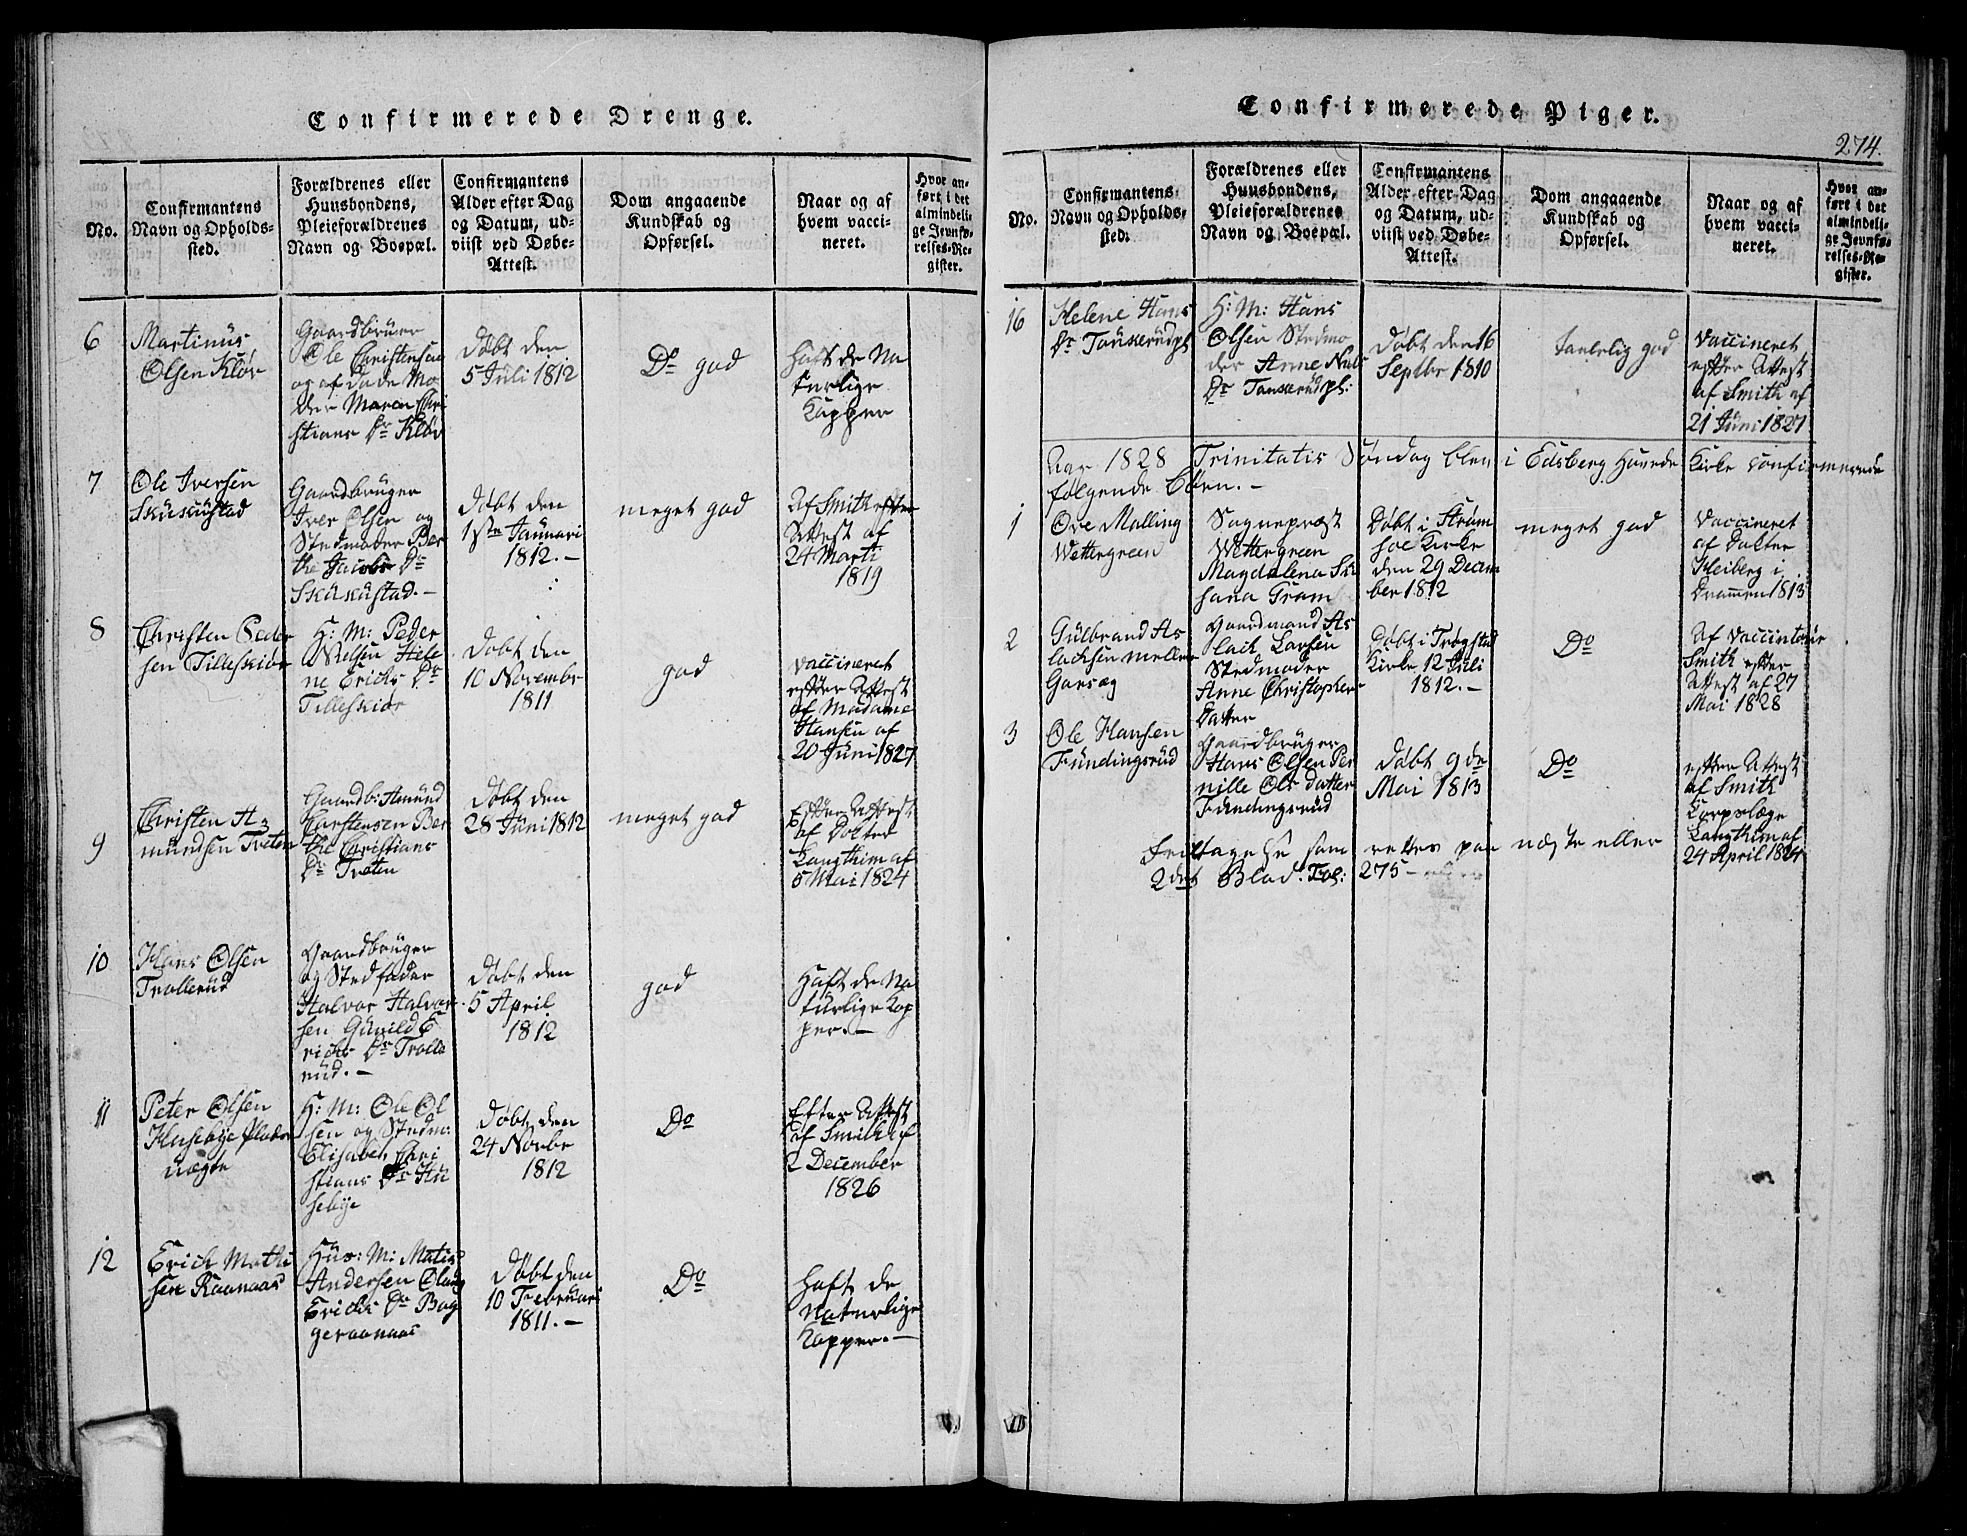 Confirmerede Drenge.
No.
Confirmantens
Navn og Opholds-
sted.
Forældrenes eller
Huusbondens,
Pleieforældrenes
Navn og Boepæl.
Confirmantens
Alder efter Dag
og Datum, ud-
viist ved Døbe-
Attest.
Dom angaaende
Kundskab og
Opførsel.
Naar og af
hvem vacci-
neret.
Hvor an-
ført i det
almindeli-
ge Jevnfø-
relses-Re-
gister.
6
Martinus
Olsen Kløv
Gaardbruer
Ole Christensen
og afdøde Mo
der Maren Chri
stians Dr Kløv
Døbt den
5 Juli 1812
Do god
haft de Na
turlige
Kopper
7
Ole Iversen
Skukustad
Gaardbruger
Iver Olsen og
Stedmoder Ber
the Jacobs Dr
Skukustad.-
Døbt den
1ste Januari
1812.-
meget god
Af Smith efter
Attest af
24 Marti
1819
8
Christen Peder
sen Tilleskiør
H: M: Peder
Nielsen Hele
ne Erichs Dr
Tilleskiør
Døbt den
10 Novembr
1811
god
vaccineret
efter Attest
af Madame
Hansen af
20 Juni 1827
9
Christen A=
mundsen Tveten
Gaardb: Amund
Carstensen Ber
the Christians
Dr Tveten
Døbt den
28 Juni 1812
meget god
Efter Attest
af Docter
Langthim af
5 Mai 1824
10
Hans Olsen
Trollerud
Gaardbruger
og Stedfader
Halvor Halvor
sen Gunild E
richs Dr Trolle
rud.-
Døbt den
5 April
1812
god
Haft de Na
turlige Kop
per.-
11
Peter Olsen
Husebye Plads
H: M: Ole Ol
sen og Stedm:
Elisabeth Chri
stians Dr Hu
sebye
Døbt den
24 Novbr
1812
Do
Efter Attest
af Smith af
2 December
1826
12
Erich Mathi
sen Raanaas
Hus: M: Matis
Andersen
Erichs Dr Bag
geraanaas
Døbt den
10 Februari
1811.-
Do
haft de
Naturlige
Kopper.-
Confirmerede Piger.
274.
No.
Confirmantens
Navn og Opholds-
sted.
Forældrenes eller
Huusbondens,
Pleieforældrenes
Navn og Boepæl.
Confirmantens
Alder efter Dag
og Datum, ud-
viist ved Døbe-
Attest.
Dom angaaende
Kundskab og
Opførsel.
Naar og af
hvem vacci-
neret.
Hvor an-
ført i det
almindeli-
ge Jevnfø-
relses-Re-
gister.
16
Helene Hans
Dr
H: M: Hans
Olsen Stedmo
der Anne Niels
Dr
Døbt den 16
Septbr 1810
taalelig god
vaccineret
efter Attest
af Smith af
21 Juni 1827
Aar 1828 Trinitatis Søndag blev i Edsberg Hovede Kirke confirmerede
følgende Børn.-
1
Ove Malling
Wettergreen
Sognepræst
Wettergreen
Magdalena Su
sana Gram
Døbt i Strøm
søe Kirke
den 29 Decem
ber 1812
meget god
vaccineret
af Docter
Heiberg i
Drammen 1813
2
Gulbrand As
lachsen Mellem
Garsæg
Gaardmand As
lach Larsen
Stedmoder
Anne Christopher
Datter
Døbt i Trøgstad
Kirke 12 Juli
1812.-
Do
Af Vaccinteur
Smith efter
Attest af 27
Mai 1828
3
Ole Hansen
Fundingsrud
Gaardbruger
Hans Olsen Per
nille Ols Datter
Fundingsrud
Døbt 9de
Mai 1813
Do
efter Attest
af Smith
Corpslæge
Langthim af
24 April 1824
som rettes paa næste eller
2det Blad. Fol: 275-